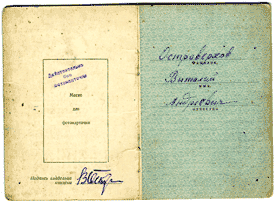 Действительно
без
фотокарточки
Место
для
фотокарточки
Подпись владельца
книжки
Островерхов
фамилия
Виталий
имя
Андреевич
отчество